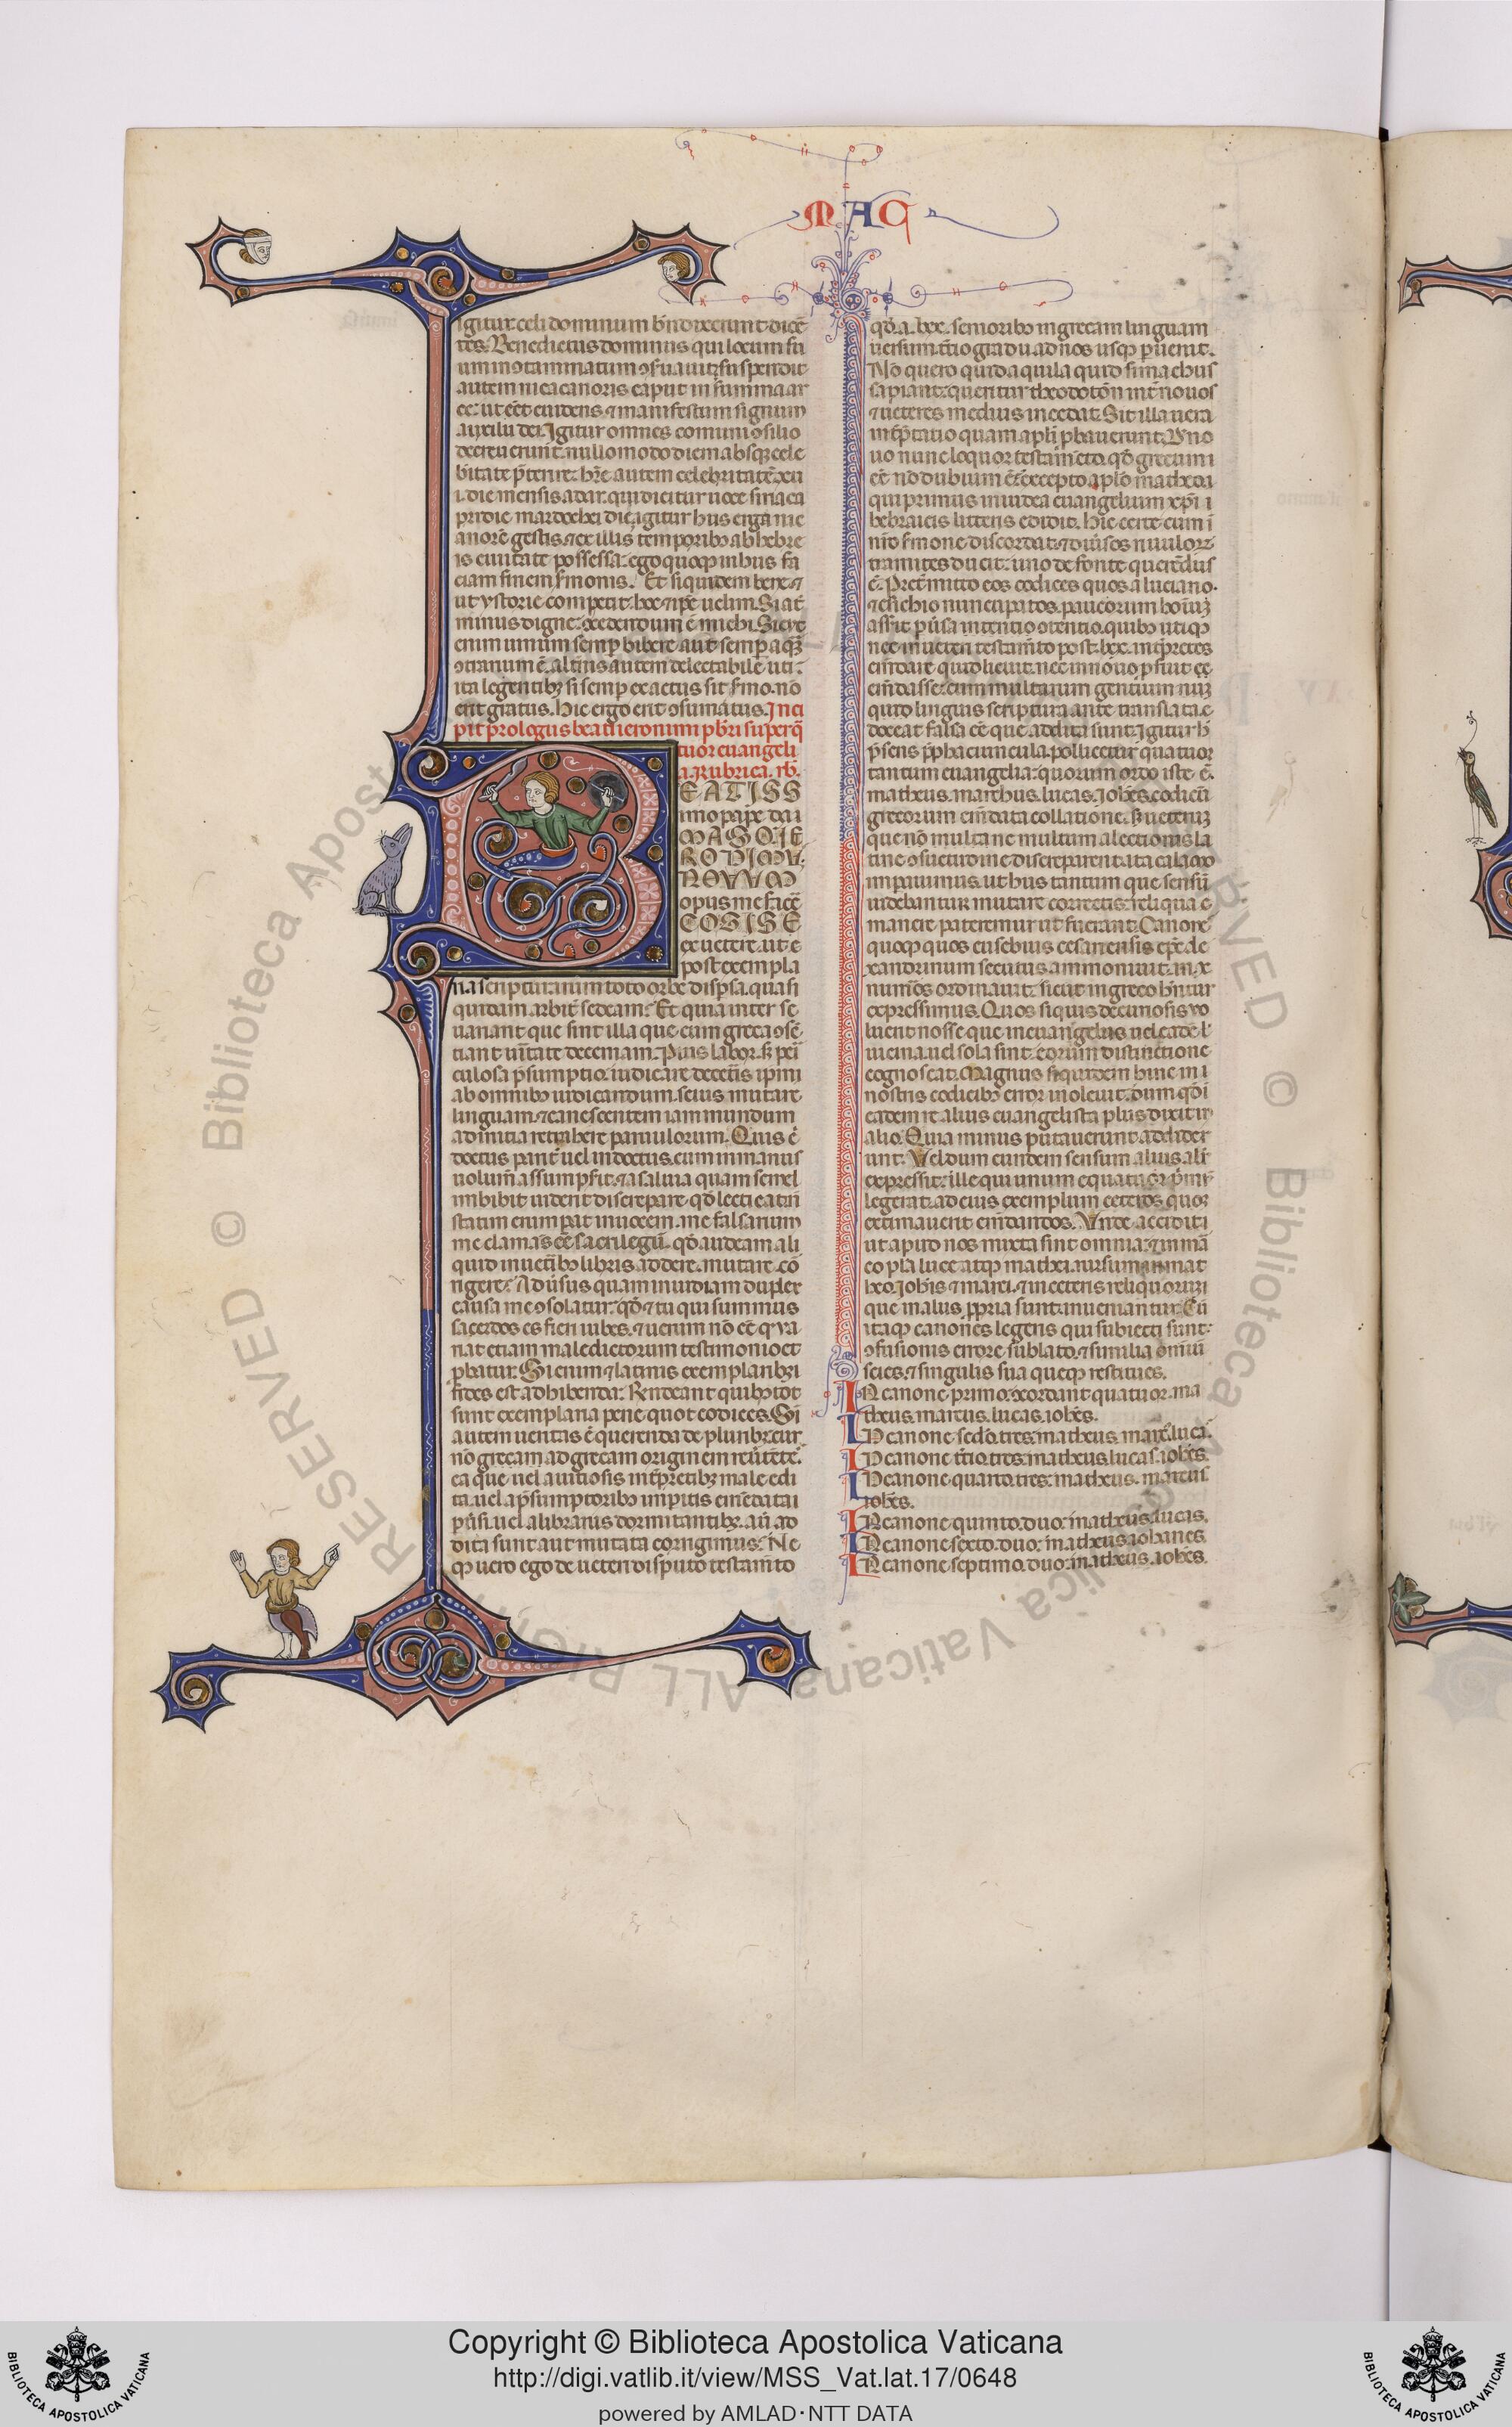 MAC
igitur celi dominum bñdixerunt dicē
tes. Benedictus dominus qui locum su
um incontaminatum ꝯseruauit. Suspendit
autem nicanoris caput in summa ar
ce: ut eēt euidens ⁊ manifestum signum
auxilii dei. Igitur omnes comuni ꝯsilio
decreuerunt nullo modo diem absqꝫ cele
britate p̄terire. hr̄e autem celebritatē xii
i. die mensis adar. qui dicitur uoce siriaca
pridie mardochei die. igitur hiis erga nic
anorē gestis. ⁊ ex illis temporibꝰ ab hebre
is ciuitate possessa: ego quoqꝫ in hiis fa
ciam finem sermonis. Et siquidem bene ⁊
ut ystorie competit: hoc ⁊ ip̄e uelim. Si aūt
minus digne: ꝯcedendum ē michi. Sicut
enim uinum semꝑ bibere aut semꝑ aquā
ꝯtrarium ē. alternis autem delectabile uti:
ita legentibꝫ si semꝑ exactus sit s̄mo. nō
erit gratus. Hic ergo erit ꝯsumatus. Inci
pit prologus beati ieronimi pbr̄i super q̄
tuor euangeli
a. Rubrica. rb̄.
BEATISS
imo pape da
MASO. IE
RONIMU
NOVVM
opus me facē
COGIS E
ex uetere. ut
post exempla
ria scripturarum toto orbe disp̄sa. quasi
quidam arbit̄ sedeam. Et quia inter se
uariant que sint illa que cum greca ꝯsē
tiant ūitate decernam. Pius labor. sꝫ pei
culosa p̄sumptio. iudicare de cet̄is ip̄m
ab omnibꝰ iudicandum. senis mutare
linguam. ⁊ canescentem iam mundum
ad initia retrahere paruulorum. Quis ē
doctus parit̄ uel indoctus. cum in manus
uolum̄ assumpserit. ⁊ a saliua quam semel
imbibit uiderit discrepare. qd̄ lectitat:
statim erumpat in uocem. me falsarium
me clamās eē sacrilegū. qd̄ audeam ali
quid in uetibꝰ libris addere. mutare. co
rigere. Aduersus quam inuidiam duplex
causa me ꝯsolatur: qd̄ ⁊ tu qui summus
sacerdos es fieri iubes. ⁊ uerum nō eē qd̄ ua
riat etiam maledictorum testimonio cō
ꝓbatur. Si enim ⁊ latinis exemplaribꝫ
fides est adhibenda: Respondeant quibꝰ. tot
sunt exemplaria pene quot codices. Si
autem ueritas ē querenda de pluribꝫ. cur
nō grecam ad grecam originem reūtentē
ea que uel a uitiosis int̄p̄tibꝫ male edi
ta. uel a p̄sumptoribꝰ imp̄itis emēdata
ꝑuersius. uel a librariis dormitantibꝫ. aut ad
dita sunt aut mutata corrigimus. Ne
qꝫ uero ego de ueteri disputo testam̄to
qd̄. a. lxx. senioribꝰ in grecam linguam
uersum. t̄tio gradu ad nos usqꝫ ꝑuenit.
Nō quero quid aquila quid simachus
sapiant: quare theodotiōn int̄ nouos
⁊ ueteres medius incedat. Sit illa uera
int̄p̄tatio quam apl̄i ꝓbauerunt. De no
uo nunc loquor testam̄to. qd̄ grecum
eē nō dubium ē: excepto apl̄o matheo
qui primus in iudea euangelium xp̄i i
hebraicis litteris edidit. Hic certe cum i
nr̄o s̄mone discordat. ⁊ diūsos riuulorꝫ
tramites ducit: uno de fonte querēdus
ē. Pret̄mitto eos codices quos a luciano
⁊ esichio nuncupatos. paucorum hoīuꝫ
asserit ꝑuersa intentio ꝯtentio. quibꝰ utiqꝫ
nec in ueteri testam̄to post. lxx. int̄pretes
emēdare quid licuit. nec in nouo ꝓfuit
emēdasse: cum multarum gentium
quid linguis scriptura ante translata.
doceat falsa eē que addita sunt. Igitur h̄
p̄sens p̄phatiuncula. pollicetur quatuor
tantum euangelia: quorum ordo iste ē.
matheus. marchus. lucas. Iohēs. codicū
grecorum emēdata collatione. sꝫ ueterꝫ
que nō multa ne multum a lectionis la
tine ꝯsuetudine discreparent. ita calamo
imperauimus. ut hiis tantum que sensū
uidebantur mutare correctis: reliqua
manere pateremur ut fuerant. Canones
quoqꝫ quos eusebius cesariensis ep̄s ale
xandrinum secutus ammonium. in. x
numeros ordinauit: sicut in greco hn̄tur
expressimus. Quos si quis de curiosis uo
luerit nosse que in euangeliis uel eadē l̄
uicina. uel sola sint: eorum distinctione
cognoscat. Magnus siquidem hic in
nostris codicibꝰ error inoleuit. dum qd̄ i
eadem re alius euangelista plus dixit i
alio. Quia minus putauerunt addider
unt. Vel dum eundem sensum alius ali
expressit: ille qui unum e quatuor primū
legerat. ad eius exemplum ceteros quoqꝫ
extimauerit emēdandos. Unde accidit
ut apud nos mixta sint omnia: ⁊ in mar
co pla luce atqꝫ mathei. rursum in mat
heo. Iohīs ⁊ marci. ⁊ in ceteris reliquorum
que aliis ꝓpria sunt. inueniantur. Cū
itaqꝫ canones legeris qui subiecti sunt:
ꝯfusionis errore sublato. ⁊ similia omniū
scies. ⁊ singulis sua queqꝫ restitues.
IN canone primo. ꝯcordant quatuor. ma
theus. marcus. lucas. iohēs.
IN canone sedo. tres. matheus. marc̄. luca.
IN canone t̄tio. tres. matheus. lucas. iohēs.
IN canone quarto. tres. matheus. marcus
iohēs.
IN canone quinto. duo. matheus. lucas.
IN canone sexto. duo. matheus. iohanes.
IN canone septimo. duo. matheus. iohēs.
© Biblioteca Apostolica Vaticana ALL RIGHTS RESERVED © Biblioteca Apostolica Vaticana ALL RIGHTS RESERVED
BIBLIOTECA APOSTOLICA VATICANA
Copyright © Biblioteca Apostolica Vaticana
http://digi.vatlib.it/view/MSS_Vat.lat.17/0648
powered by AMLAD·NTT DATA
BIBLIOTECA APOSTOLICA VATICANA